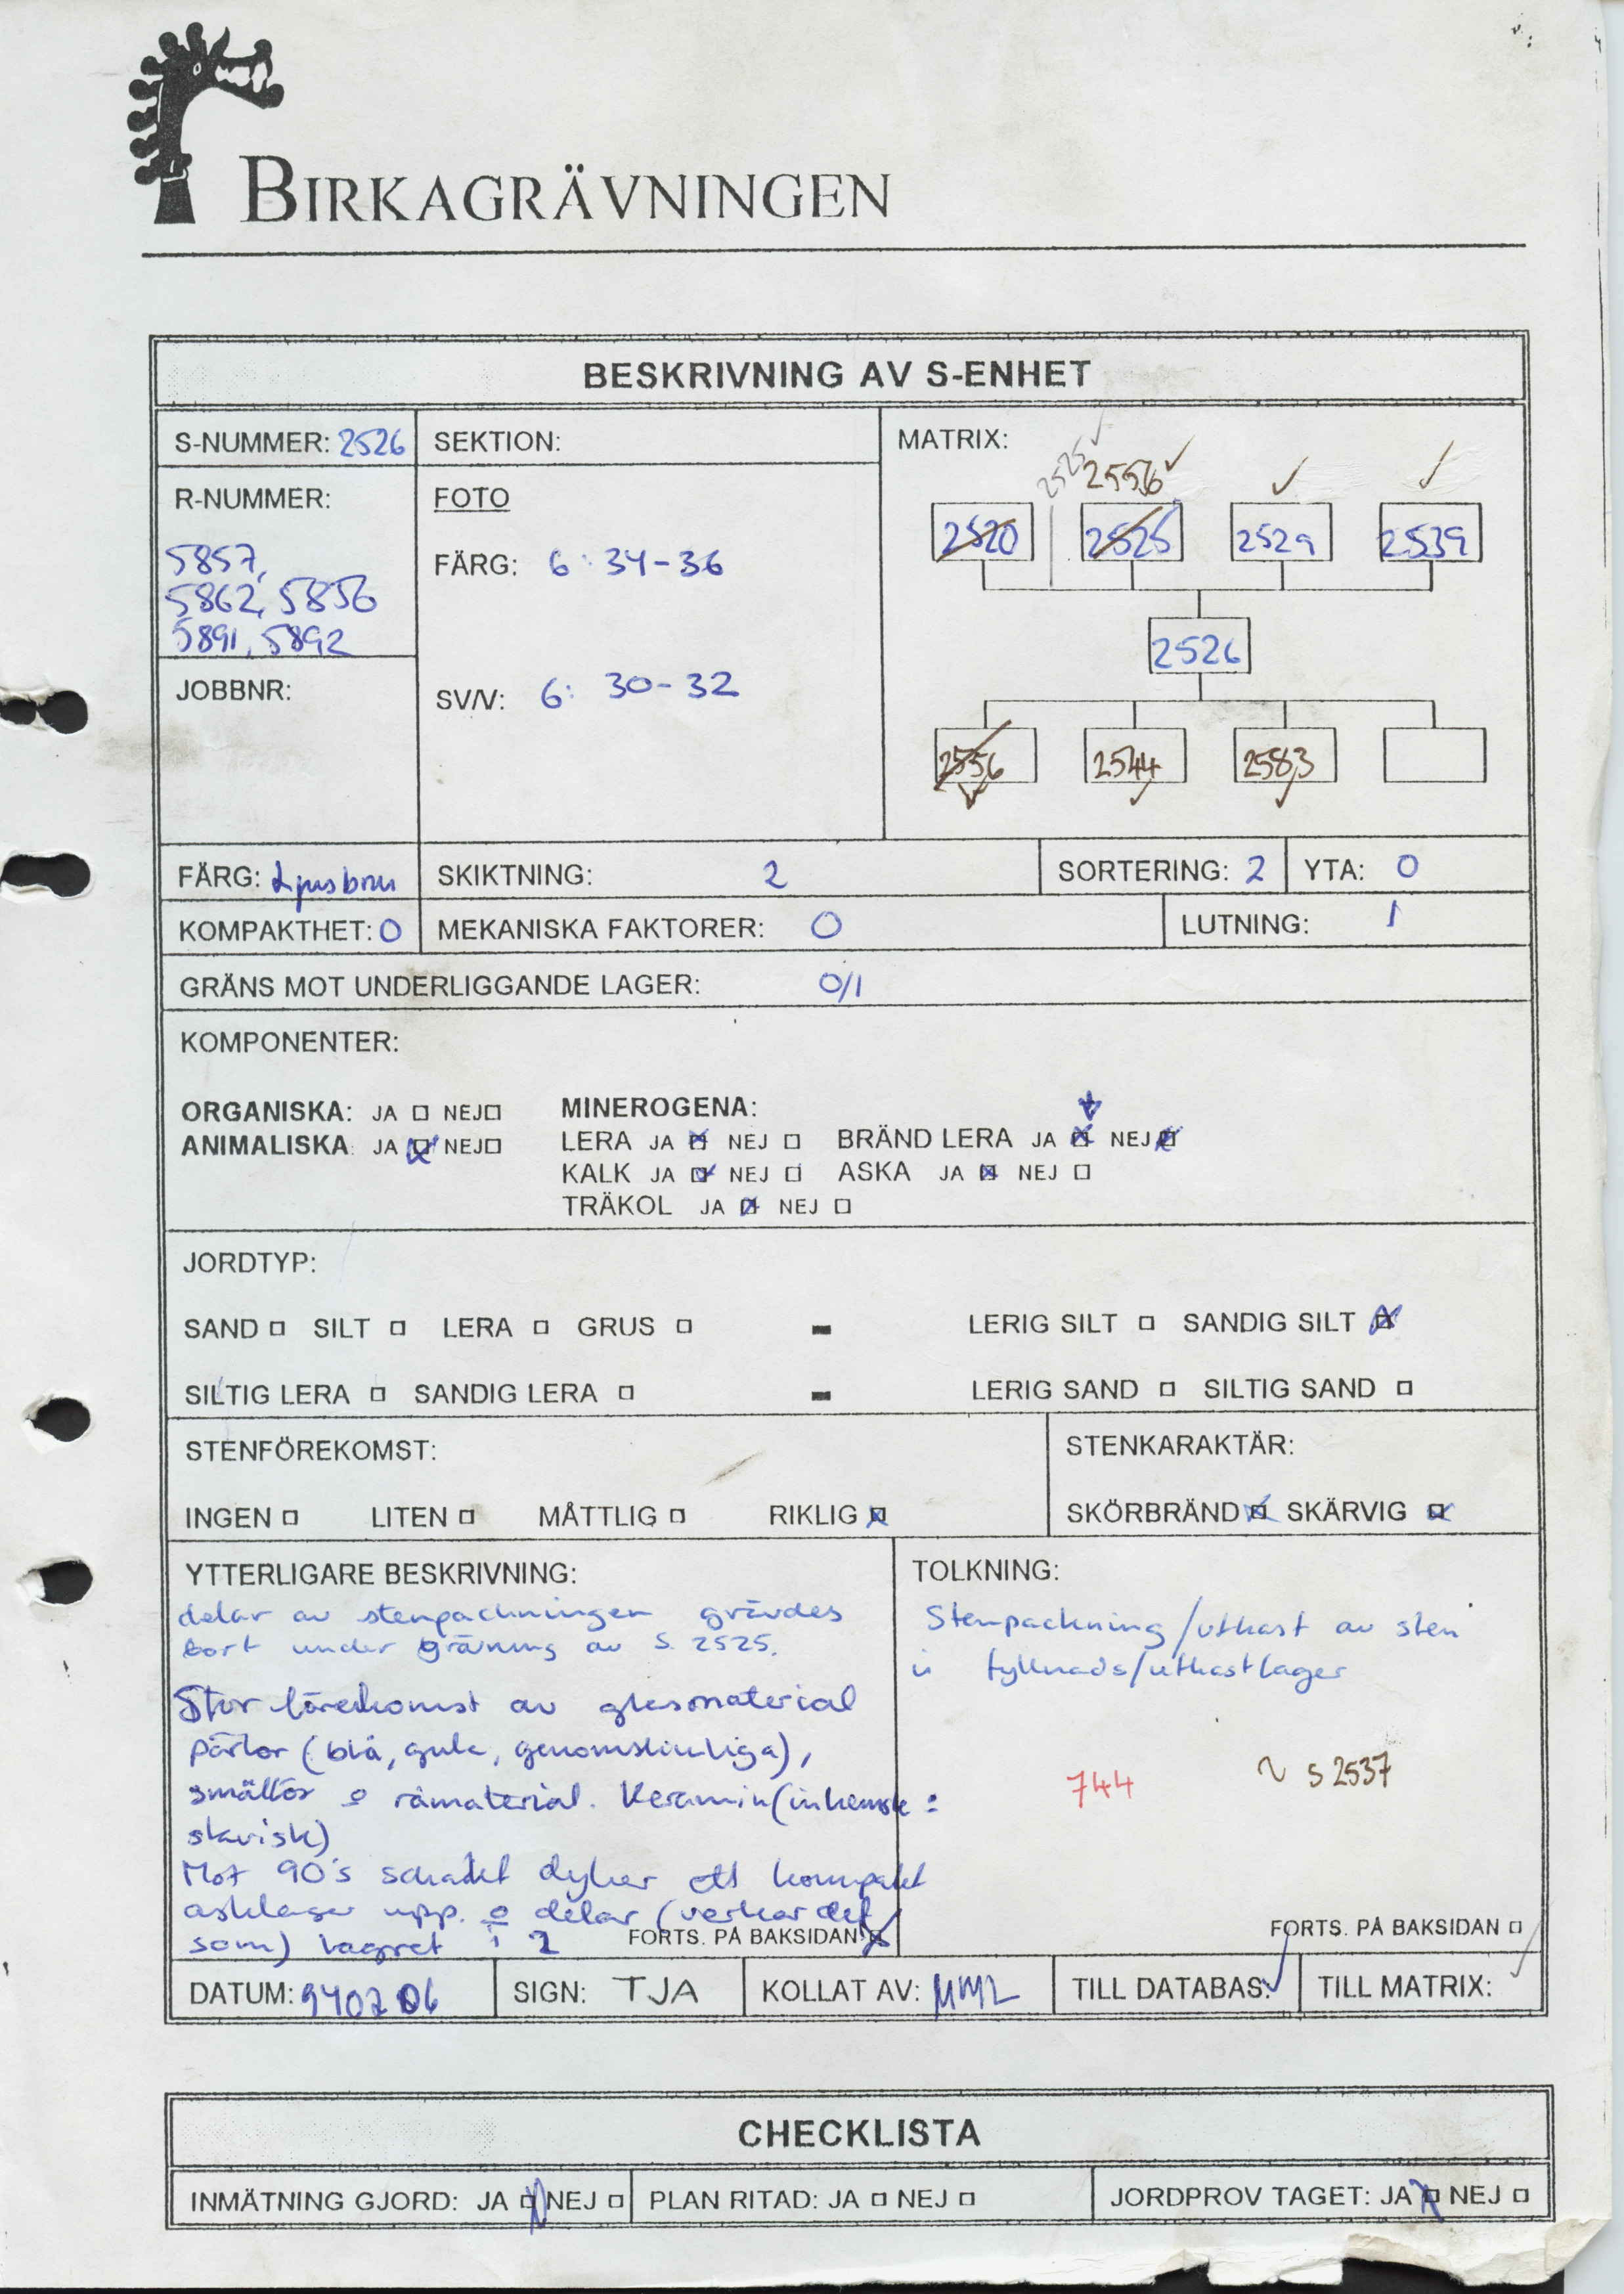 BIRKAGRÄVNINGEN
BESKRIVNING AV S-ENHET
S-NUMMER: 2526
SEKTION:
MATRIX:
R-NUMMER:
5857,
5862, 5856
5891, 5892
FOTO
FÄRG: 6: 34-36
SV/V: 6: 30-32
JOBBNR:
2525 2556
2520 2525 2529 2539
2526
2556 2544 2583
FÄRG: Ljusbrun SKIKTNING: 2 SORTERING: 2 YTA: 0
KOMPAKTHET: 0 MEKANISKA FAKTORER: 0 LUTNING: 1
GRÄNS MOT UNDERLIGGANDE LAGER: 0/1
KOMPONENTER:
ORGANISKA: JA NEJ MINEROGENA:
ANIMALISKA: JA NEJ LERA JA NEJ BRÄND LERA JA NEJ
KALK JA NEJ ASKA JA NEJ
TRÄKOL JA NEJ
JORDTYP:
SAND SILT LERA GRUS - LERIG SILT SANDIG SILT
SILTIG LERA SANDIG LERA - LERIG SAND SILTIG SAND
STENFÖREKOMST: STENKARAKTÄR:
INGEN LITEN MÅTTLIG RIKLIG SKÖRBRÄND SKÄRVIG
YTTERLIGARE BESKRIVNING:
delar av stenpackningen grävdes
bort under grävning av S. 2525.
Stor förekomst av glasmaterial
pärlor (blå, gula, genomskinliga),
smältor o råmaterial. Keramik (inhemsk :
slavisk)
Mot 90's schaktet dyker ett kompakt
asklager upp. o delar (verkar det
som) lagret i 2
FORTS. PÅ BAKSIDAN
TOLKNING:
Stenpackning/utkast av sten
i fyllnads/utkastlager
744 ~ S 2537
FORTS. PÅ BAKSIDAN
DATUM: 940706 SIGN: TJA KOLLAT AV: MML TILL DATABAS: TILL MATRIX:
CHECKLISTA
INMÄTNING GJORD: JA NEJ PLAN RITAD: JA NEJ JORDPROV TAGET: JA NEJ